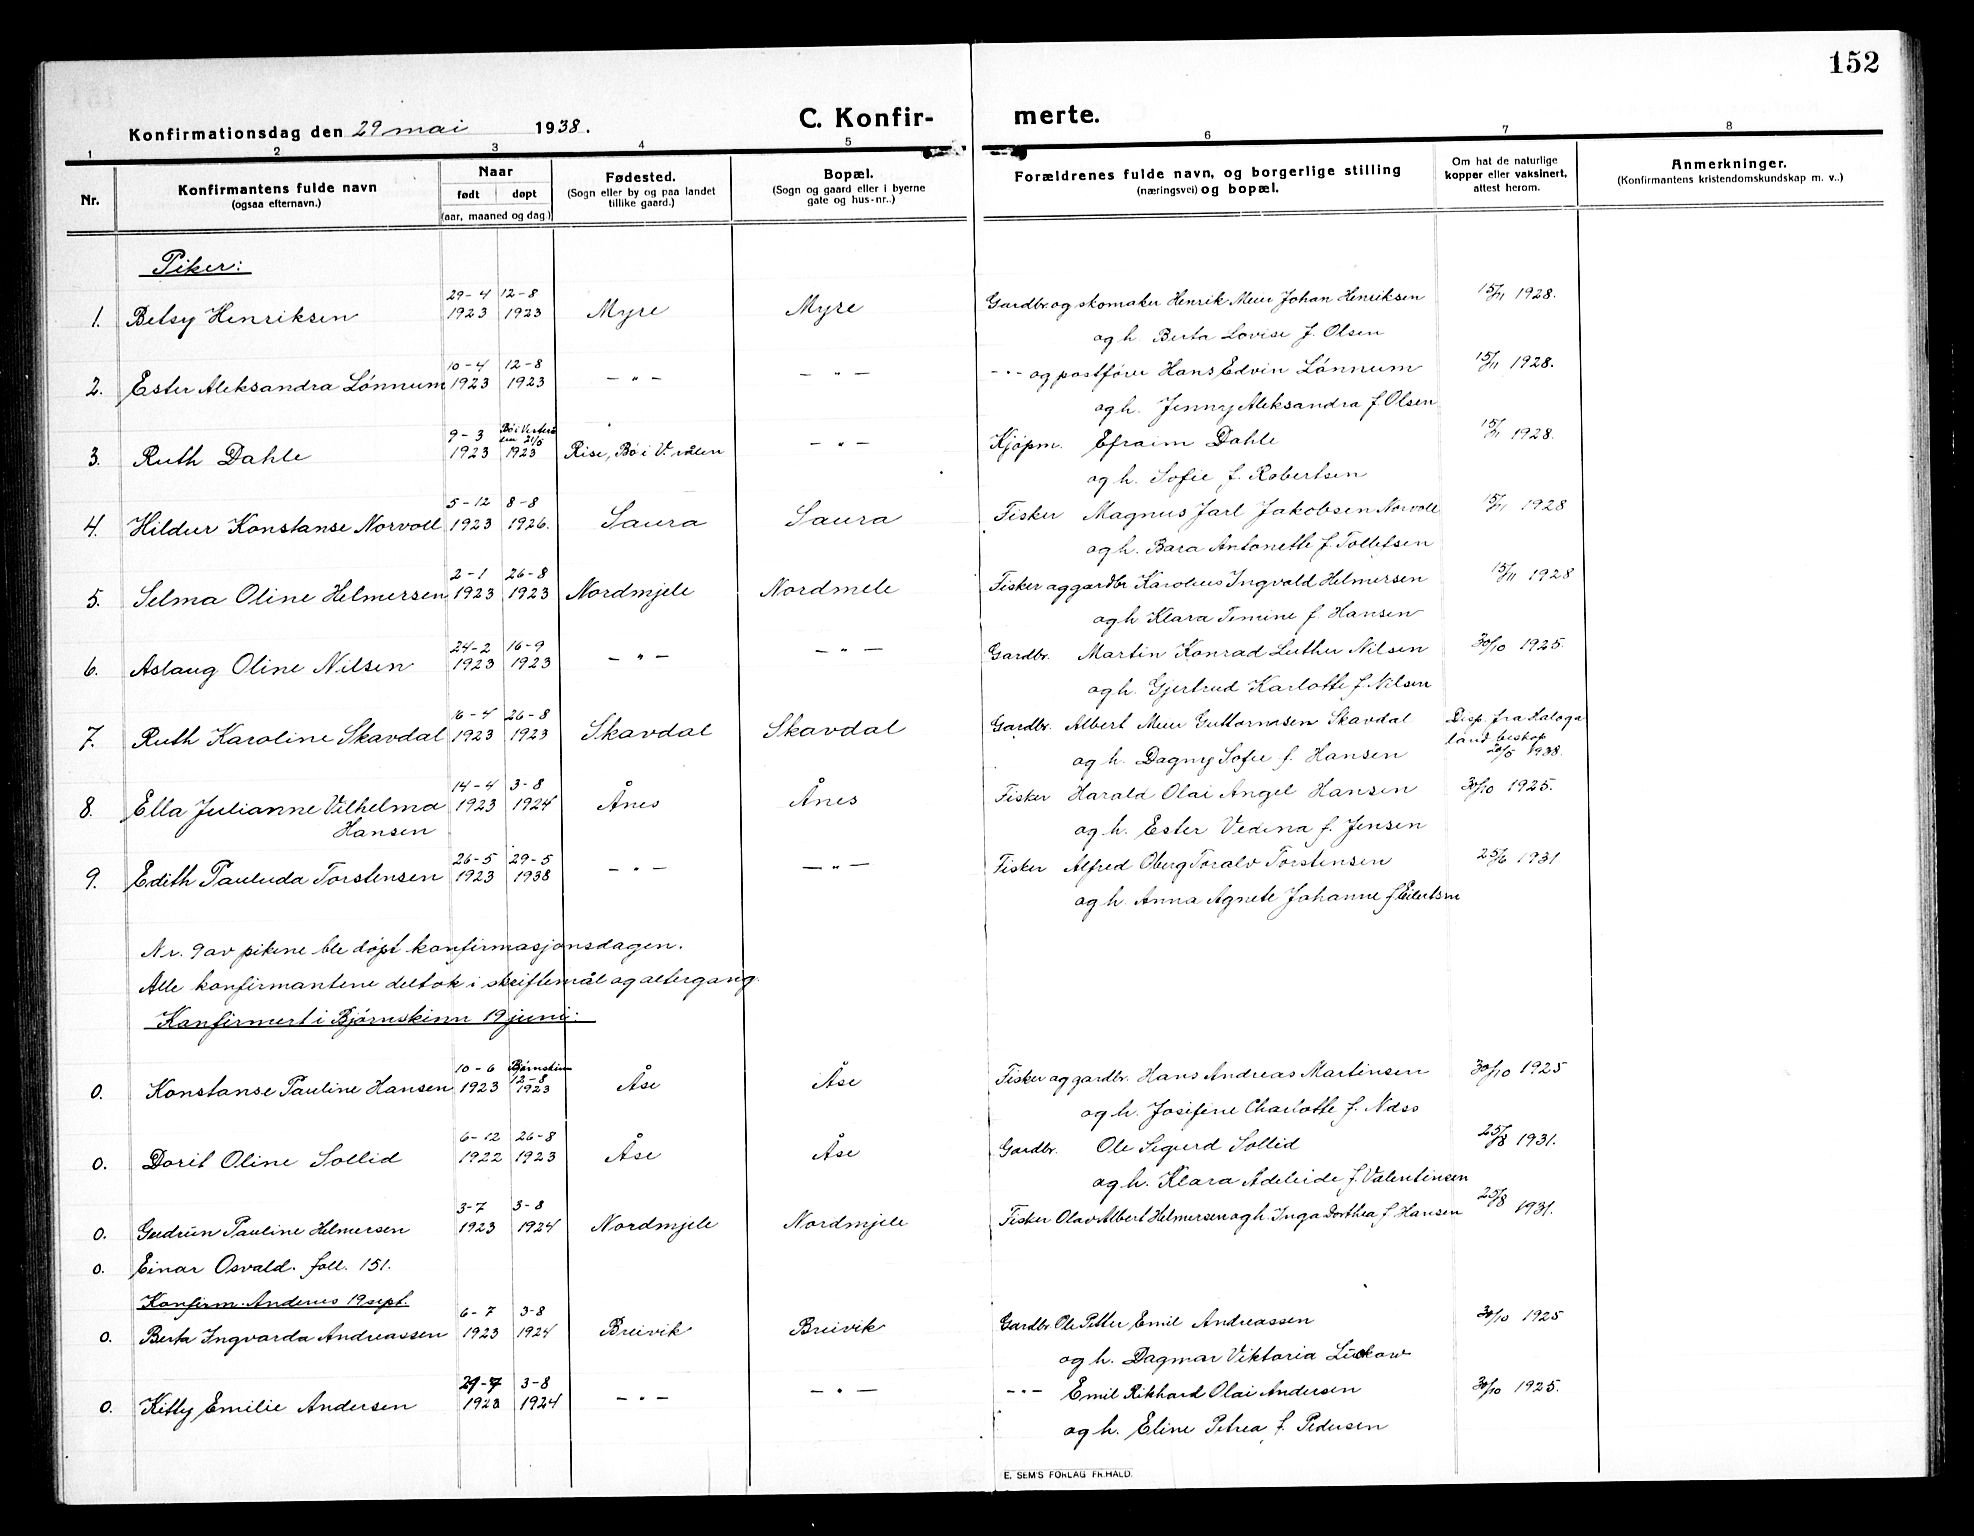 152
Konfirmationsdag den 29 mai 1938.
C. Konfir- merte.
1 2 3 4 5 6 7 8
Nr.
Konfirmantens fulde navn
(ogsaa efternavn.)
Naar
født døpt
(aar, maaned og dag.)
Fødested.
(Sogn eller by og paa landet
tillike gaard.)
Bopæl.
(Sogn og gaard eller i byerne
gate og hus-nr.,)
Forældrenes fulde navn, og borgerlige stilling
(næringsvei) og bopæl.
Om hat de naturlige
kopper eller vaksinert,
attest herom.
Anmerkninger.
(Konfirmantens kristendomskundskap m. v..)
Piker:
29-4 12-8
1. Betsy Henriksen 1923 1923 Myre Myre Gardbr. og skomaker Henrik Meier Johan Henriksen 15/11 1928.
og h. Berta Lovise f. Olsen
10-4 12-8
2. Ester Aleksandra Lønnum 1923 1923 — " — — " — — " — og postfører Hans Edvin Lønnum 15/11 1928.
og h. Jenny Aleksandra f. Olsen
9-3 Bø i Vesterå
len 21/5
3. Ruth Dahle 1923 1923 Rise, Bø i V.rålen — " — Kjøpm. Efraim Dahle 15/11 1928.
og h. Sofie f. Robertsen
5-12 8-8
4. Hildur Konstanse Norvoll 1923 1926. Saura Saura Fisker Magnus Jarl Jakobsen Norvoll 15/11 1928
og h. Bara Antonette f. Tolletsen
2-1 26-8
5. Selma Oline Helmersen 1923 1923 Nordmjele Nordmele Fisker og gardbr Karolius Ingvald Helmersen 15/11 1928
og h Klara Temine f. Hansen
24-2 16-9
6. Aslaug Oline Nilsen 1923 1923 — " — — " — Gardbr. Martin Konrad Luther Nilsen 30/10 1925.
og h. Gjertrud Karlotte f. Nilsen
16-4 26-8
7. Ruth Karoline Skavdal 1923 1923 Skavdal Skavdal Gardbr. Albert Meier Guttormsen Skavdal Disp. fra Haloga
land biskop
20/5 1938.
og h. Dagny Sofie f. Hansen
14-4 3-8
8. Ella Julianne Vilhelma 1923 1924 Ånes Ånes Fisker Harald Olai Angel Hansen 30/10 1925.
Hansen
og h. Ester Vedina f. Jensen
26-5 29-5
9. Edith Pauluda Torstensen 1923 1938 — " — — " — Fisker Alfred Oberg Toralv Torstensen 25/6 1931
og h. Anna Agnete Johanne f Eilertsen
Nr. 9 av pikene ble døpt konfirmasjonsdagen.
Alle konfirmantene deltok i skriftemål og altergang.
Konfirmert i Bjørnskinn 19 juni:
10-6 Bjørnskinn
12-8
0. Konstanse Pauline Hansen 1923 1923 Åse Åse Fisker og gardbr. Hans Andreas Martinsen 30/10 1925
og h. Josefine Charlotte f. Næss
6-12 26-8
0. Dorit Oline Sollid 1922 1923 Åse Åse Gardbr. Ole Sigurd Sollid 25/8 1931.
og h. Klara Adeleide f. Valentinsen
3-7 3-8
0. Gudrun Pauline Helmersen 1923 1924 Nordmjele Nordmjele Fisker Olav Albert Helmersen og h Inga Dorthea f Hansen 25/8 1931.
0. Einar Osvald. foll. 151.
Konfirm. Andenes 19 sept.
6-7 3-8
0. Berta Ingvarda Andreassen 1923 1924 Breivik Breivik Gardbr. Ole Petter Emil Andreassen 30/10 1925
og h. Dagmar Viktoria
29-7 3-8
0. Kitty Emilie Andersen 1923 1924 — " — — " — — " — Emil Rikhard Olai Andersen 30/10 1925.
og h. Eline Petrea f. Pedersen
E. SEM'S FORLAG FR.HALD.